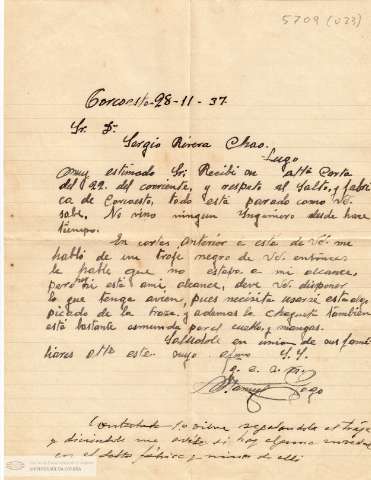 5709 (023)
Corcoesto-28-11-37.
Sr. Dn
Sergio Rivera Chao.
Lugo
muy estimado Sr. Recibi su atta Carta
del 22. del corriente, y respeto al Salto, y fabri
ca de Corcoesto, todo está parado como Vd.
sabe, No vino ningun Ingeniero desde hace
tiempo.
En cortes anterior a esta de Vd. me
habló de un traje negro de Vd. entonces
le hable que no estaba a mi alcance,
pero hoy está ami, alcance, deve Vd. disponer
lo que tenga avien, pues necesita usarse esta algo
picado de la traza, y ademas la chaqueta tambien
está bastante esmunda por el cuello, y mangas.
Saludole en union de sus fami
liares atto este suyo afmo S. S.
q. e. s. m.
Manuel
Contestada 1º Dibre
y diciendole me avise si hay alguna novedad
en el Salto fabrica y minas de alli